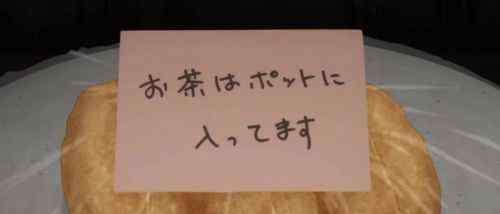 お茶はポットに
入ってます